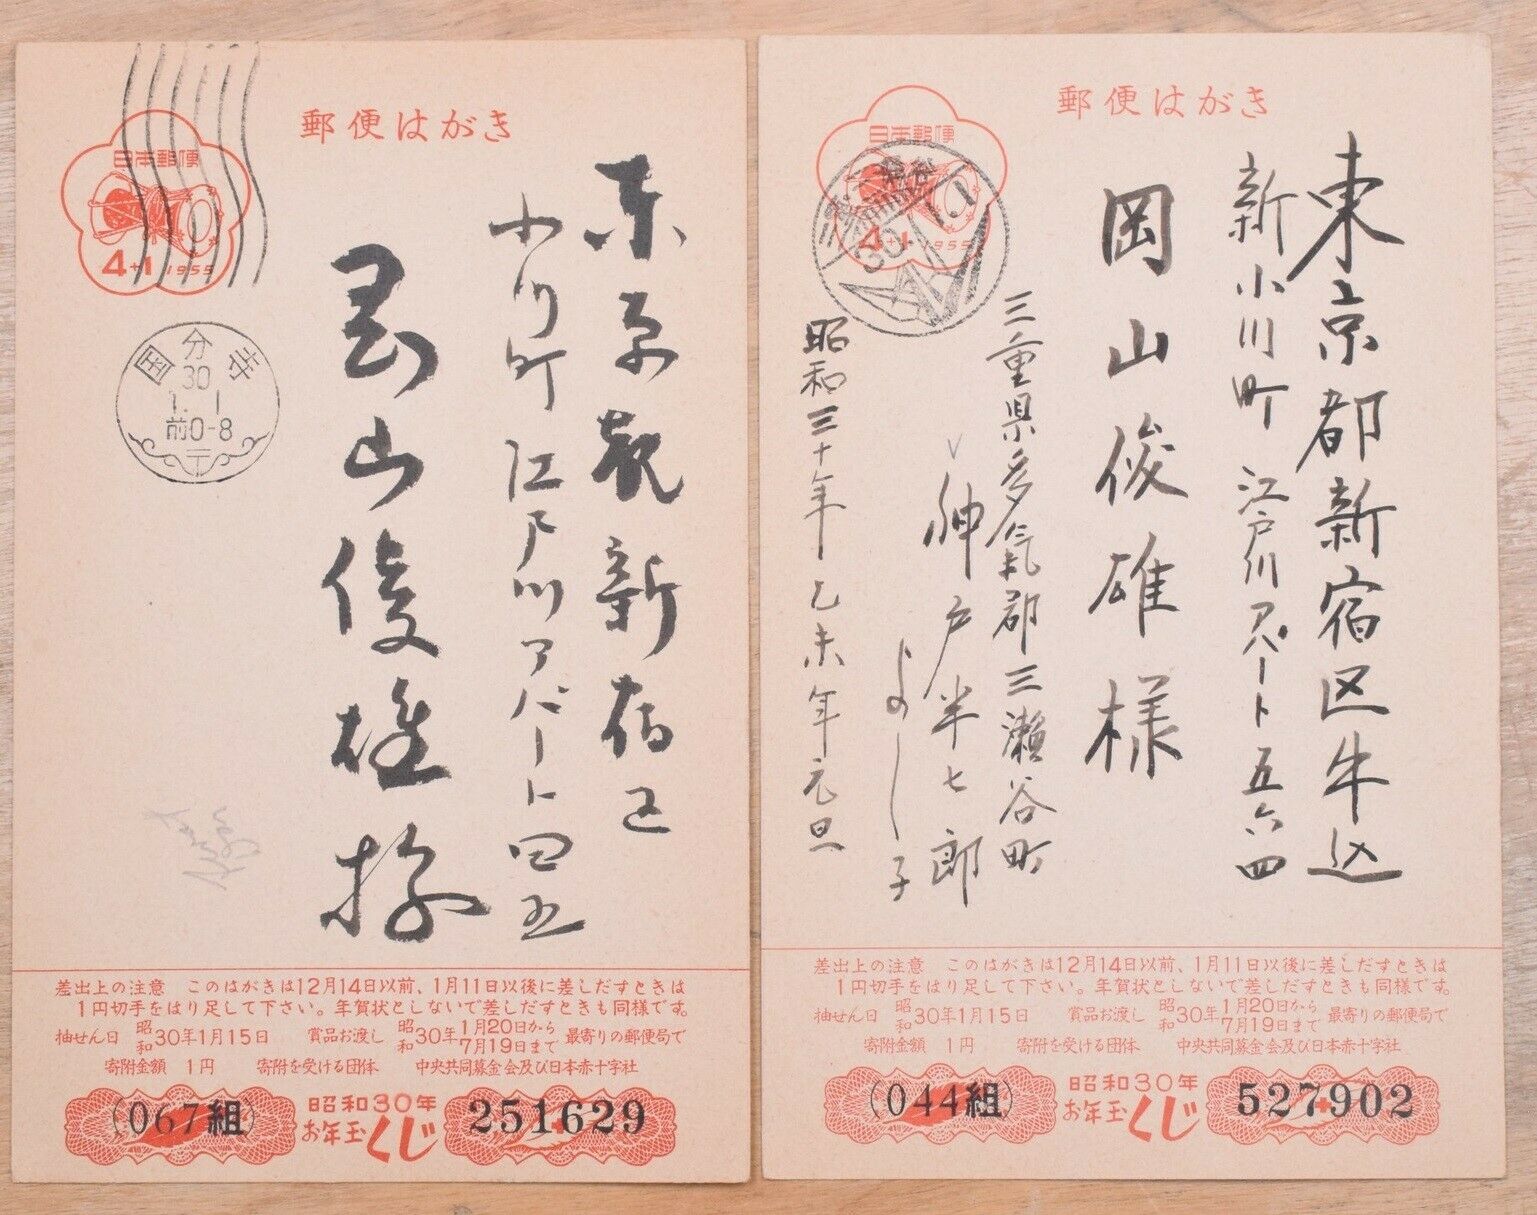 郵便はがき
日本郵便
4+1 1955
国分寺
30
1.1
前0-8
東京都新宿区
小川町江戸川アパート四五
岡山俊雄様
差出上の注意 このはがきは12月14日以前、1月11日以後に差しだすときは
1円切手をはり足して下さい。年賀状としないで差しだすときも同様です。
抽せん日 昭和30年1月15日 賞品お渡し 昭和30年1月20日から7月19日まで 最寄りの郵便局で
寄附金額 1円 寄附を受ける団体 中央共同募金会及び日本赤十字社
(067組) 昭和30年お年玉くじ 251629
郵便はがき
日本郵便
4+1 1955
30
東京都新宿区牛込
新小川町江戸川アパート五六四
岡山俊雄様
三重県多氣郡三瀬谷町
神戸半七郎
よし子
昭和三十年乙未年元旦
差出上の注意 このはがきは12月14日以前、1月11日以後に差しだすときは
1円切手をはり足して下さい。年賀状としないで差しだすときも同様です。
抽せん日 昭和30年1月15日 賞品お渡し 昭和30年1月20日から7月19日まで 最寄りの郵便局で
寄附金額 1円 寄附を受ける団体 中央共同募金会及び日本赤十字社
(044組) 昭和30年お年玉くじ 527902